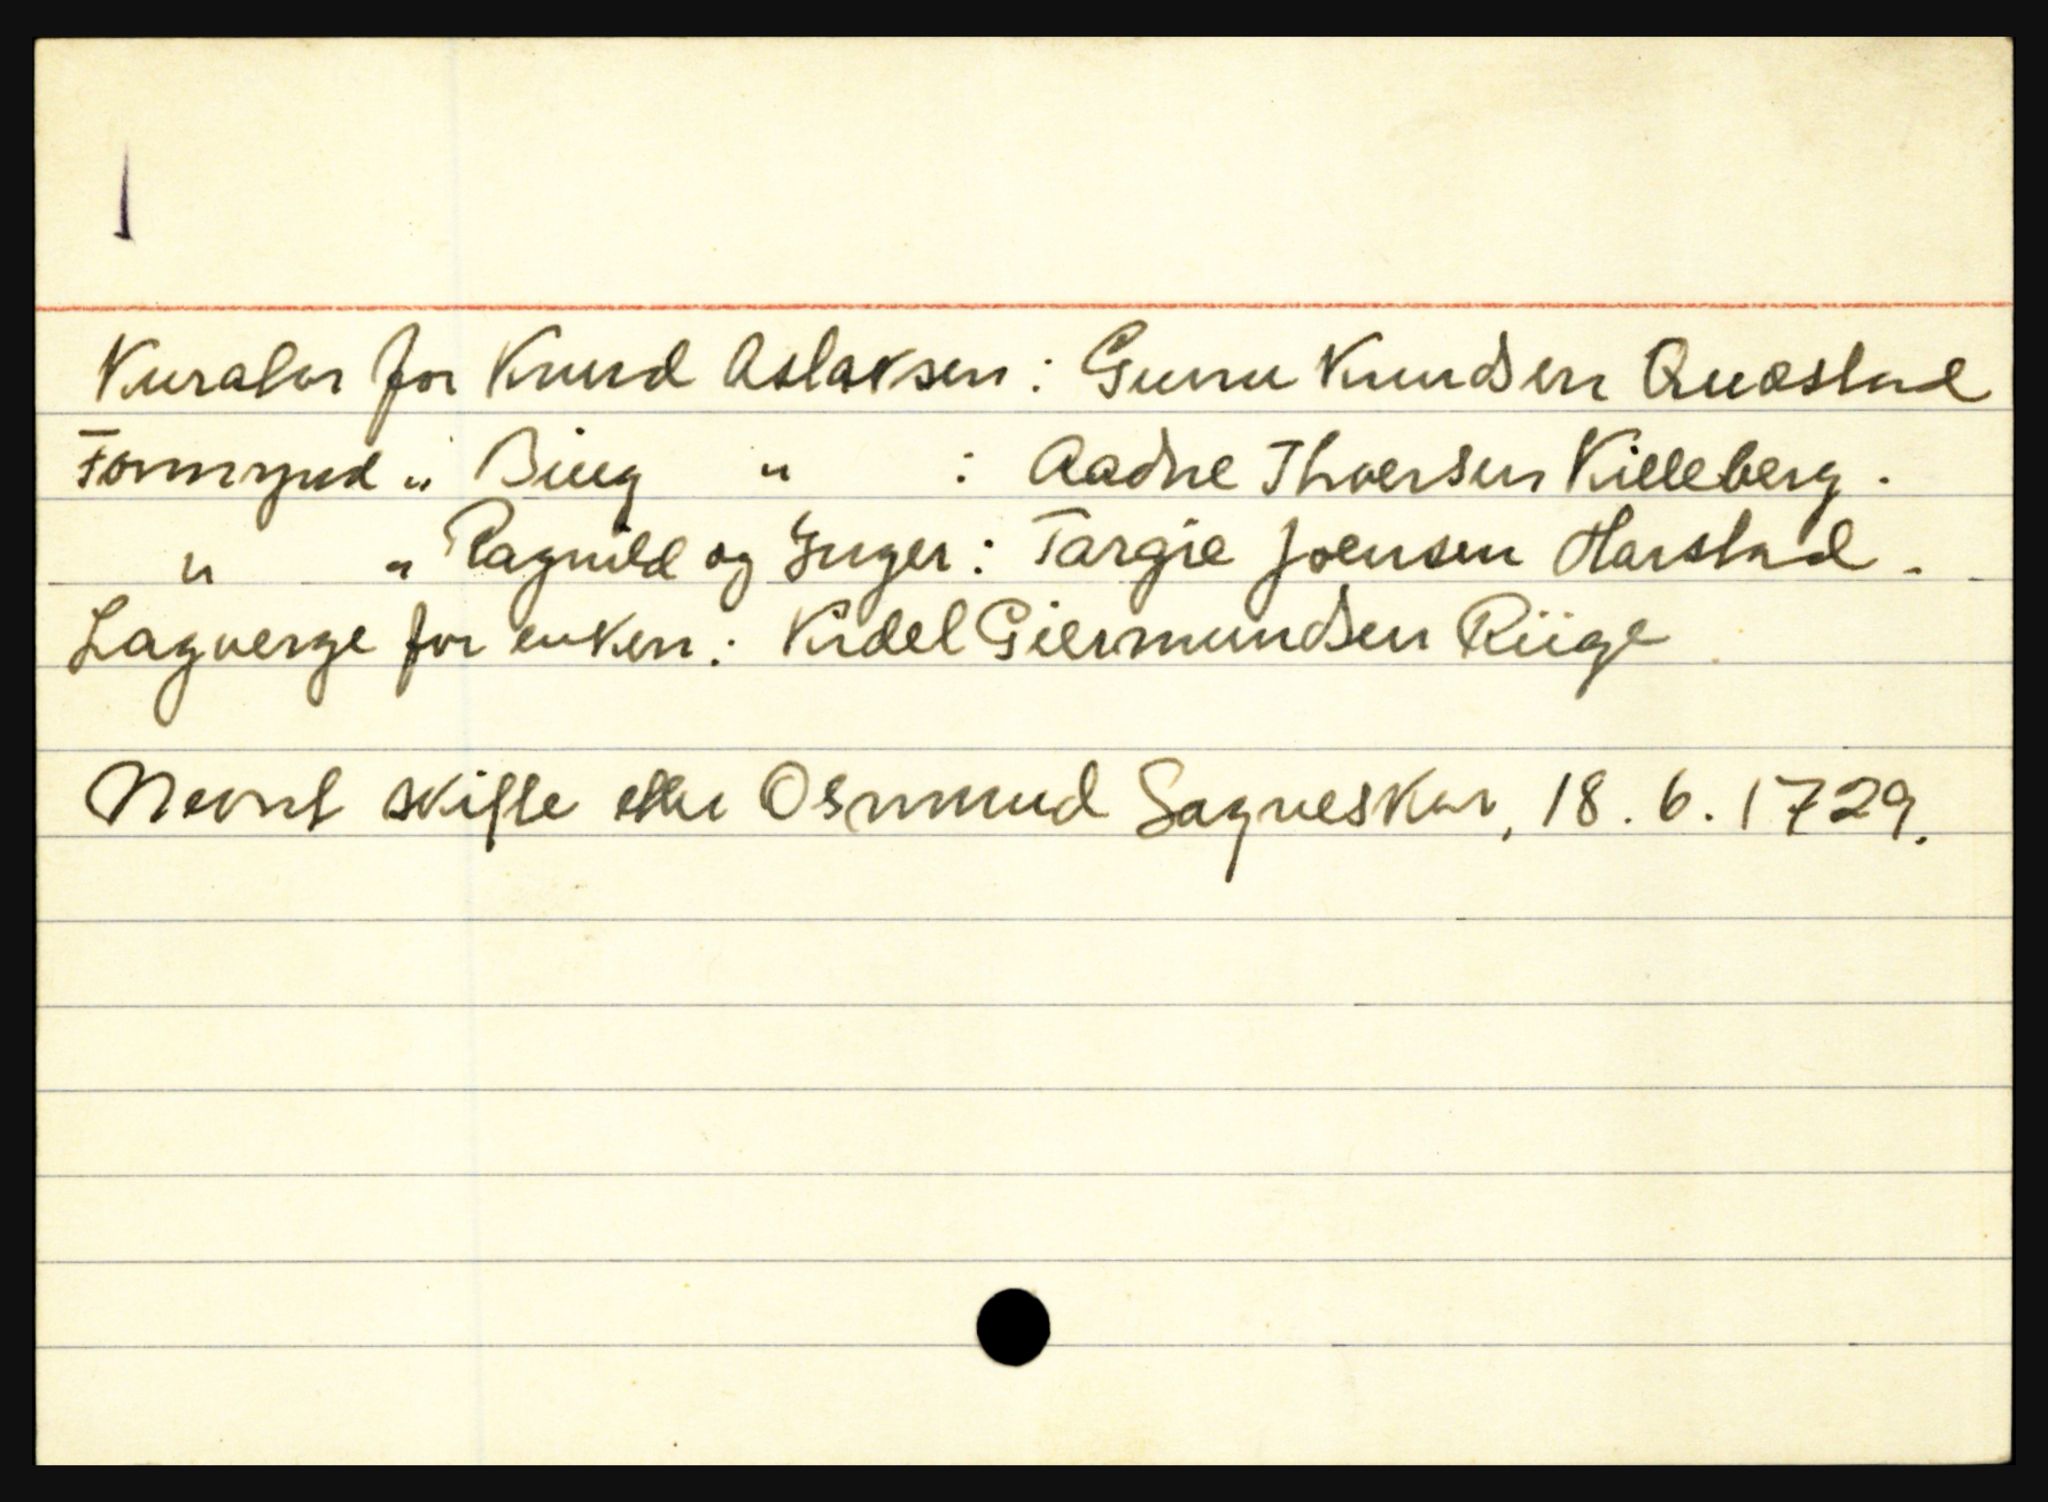 Kurator for Knud Aslaksen: Gunu Knudsen Quastad
Formynd " Biug " : Aadne Thoersen Killeberg.
" " Ragnild og Inger: Targie Joensen Harstad.
Lagverge for enken: Kidel Giermundsen Riige
Nevnt skifte etter Osmund Sagneskar, 18.6.1729.